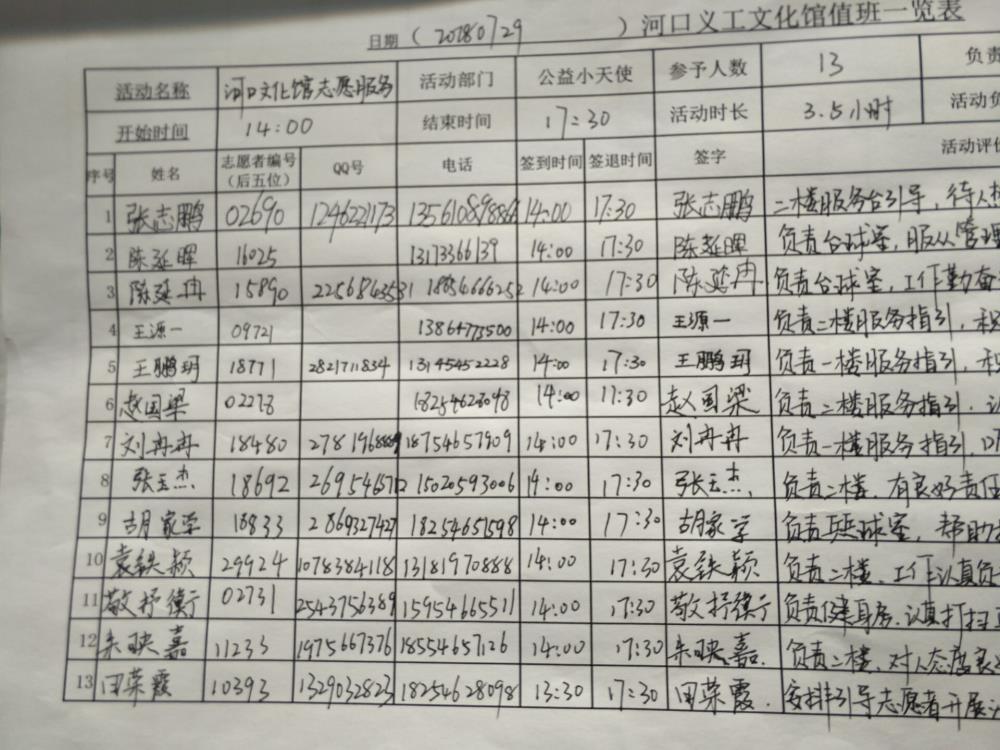 日期（20180729）河口义工文化馆值班一览表
活动名称 河口文化馆志愿服务 活动部门 公益小天使 参予人数 13 负责
开始时间 14:00 结束时间 17:30 活动时长 3.5小时 活动负
序号 姓名 志愿者编号（后五位） QQ号 电话 签到时间 签退时间 签字 活动评价
1 张志鹏 02690 1246221173 14:00 17:30 张志鹏 二楼服务台引导，待人
2 陈延晖 16025 13173366139 14:00 17:30 陈延晖 负责台球室，服从管理
3 陈延冉 15890 14:00 17:30 陈延冉 负责台球室，工作勤奋
4 王源一 09721 13864773500 14:00 17:30 王源一 负责二楼服务指引，积
5 王鹏玥 18771 2821711834 13145452228 14:00 17:30 王鹏玥 负责一楼服务指引，积
6 赵国梁 02273 14:00 17:30 赵国梁 负责二楼服务指引，认
7 刘冉冉 18480 18754657909 14:00 17:30 刘冉冉 负责一楼服务指引，
8 张玉杰 18692 15020593006 14:00 17:30 张玉杰 负责二楼，有良好责任
9 胡家学 18833 2869327427 18254651598 14:00 17:30 胡家学 负责乒球室，帮助
10 袁铁颖 29924 1078384118 13181970888 14:00 17:30 袁铁颖 负责二楼，工作认真负
11 敬抒衡 02731 2543756389 15954665511 14:00 17:30 敬抒衡 负责健身房，认真打扫
12 朱映嘉 11233 1975667376 18554657126 14:00 17:30 朱映嘉. 负责二楼，对人态度良
13 田荣霞 10393 1329032823 18254628098 13:30 17:30 田荣霞. 安排引导志愿者开展